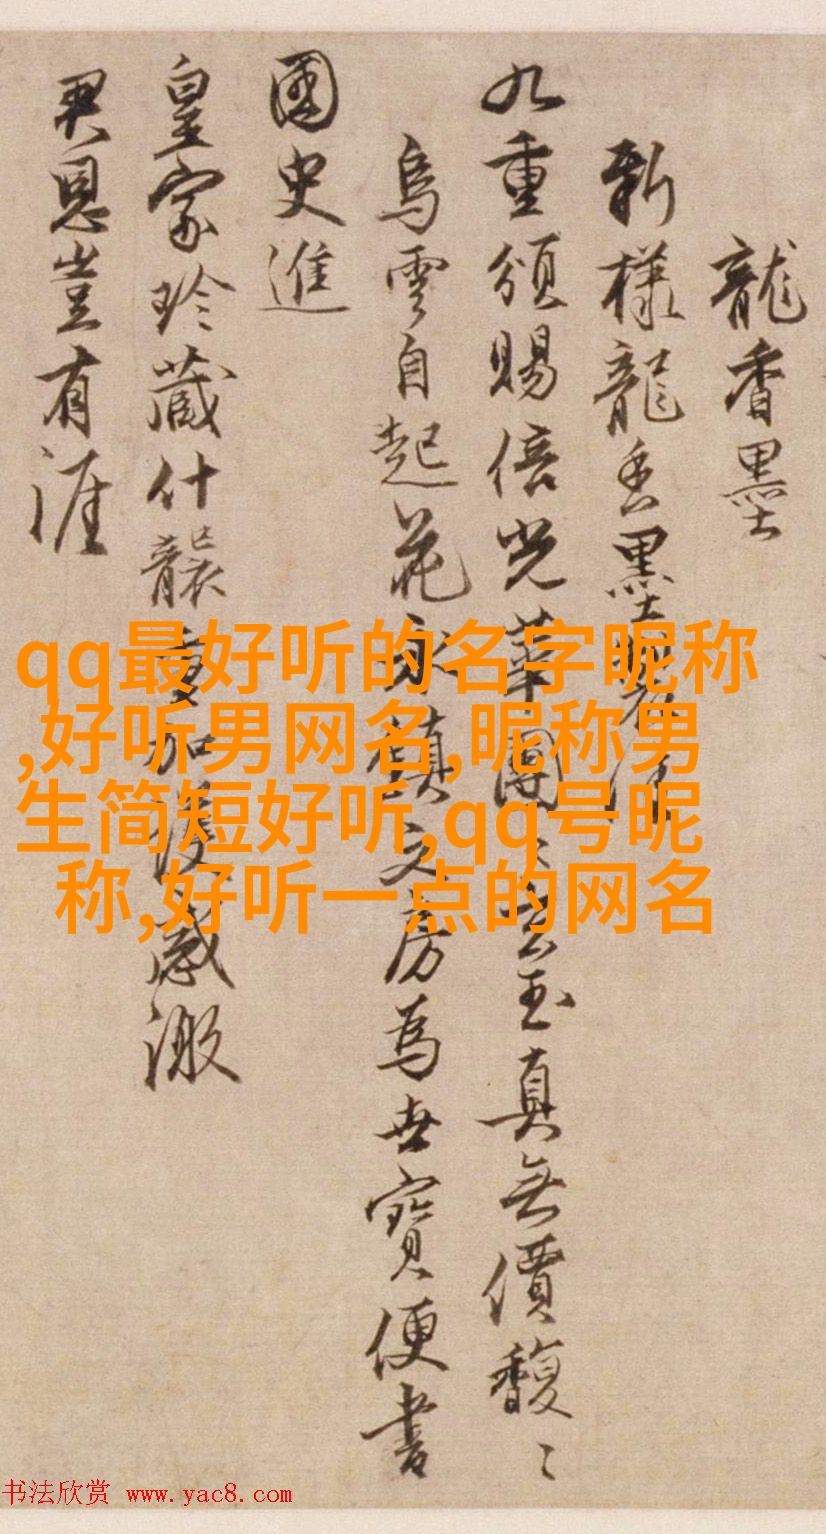 龍香墨
新樣龍香墨
九重頒賜倍光華團〻玄玉真無價馥〻
烏雲自起花永鎮文房為世寶便書
國史進
皇家珍藏什襲重加護感激
君恩豈有涯
qq最好听的名字昵称
,好听男网名,昵称男
生简短好听,qq号昵
称,好听一点的网名
书法欣赏 www.yac8.com